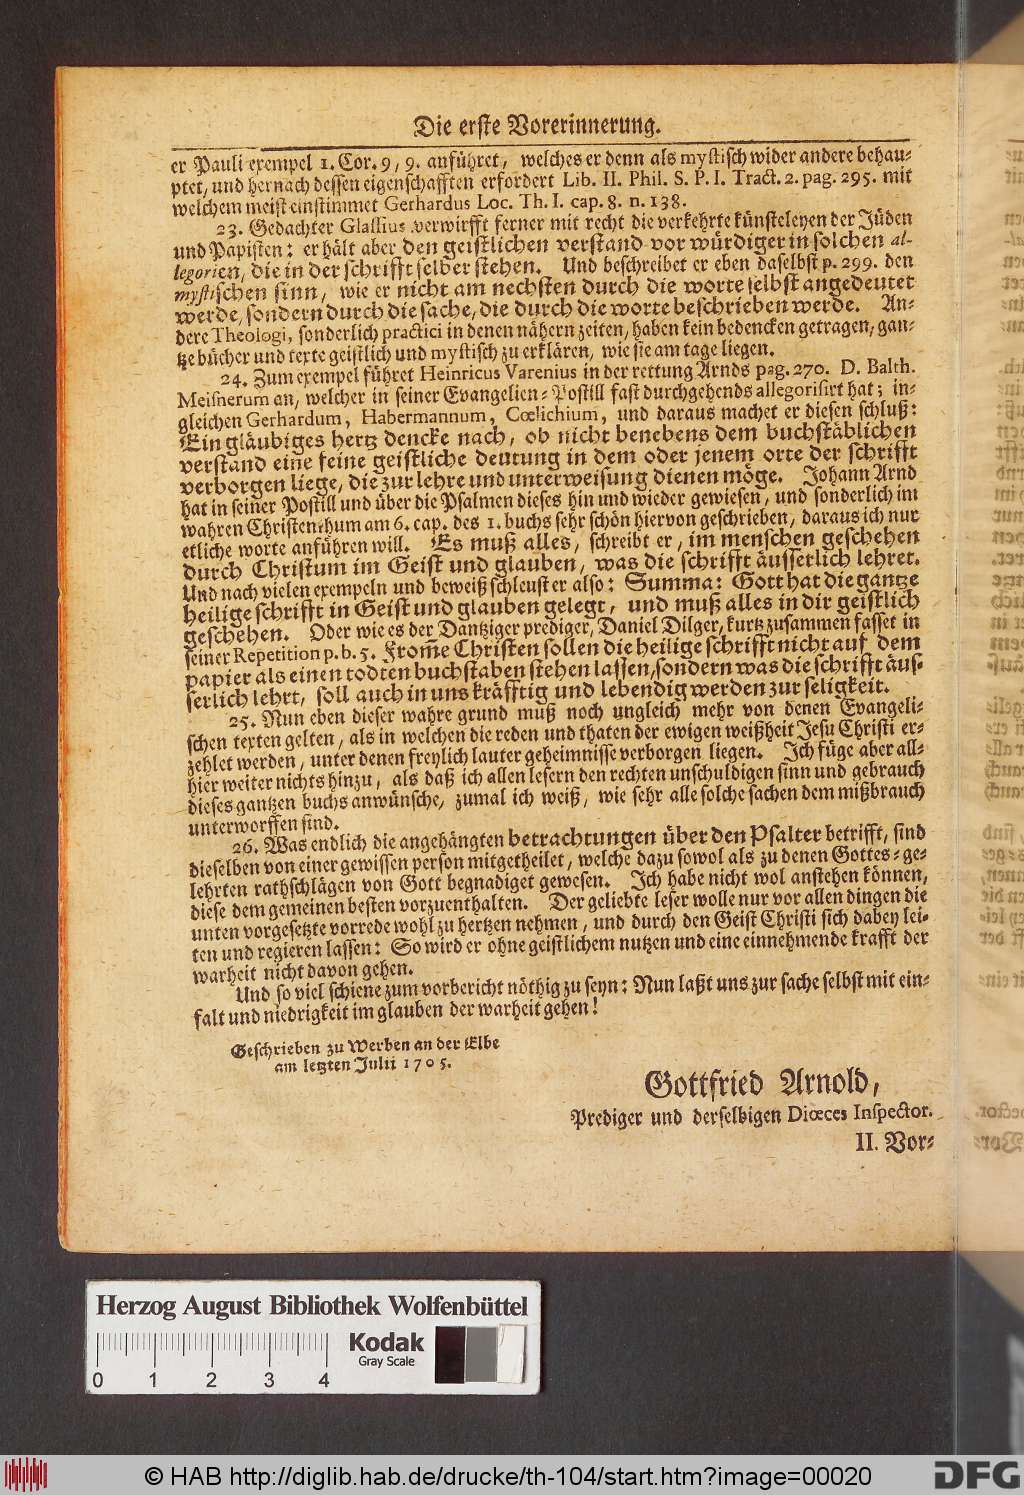 Die erste Vorerinnerung.
er Pauli exempel 1. Cor. 9, 9. anführet, welches er denn als mystisch wider andere behau-
ptet, und hernach dessen eigenschafften erfordert Lib. II. Phil. S. P. I. Tract. 2. pag. 295. mit
welchem meist einstimmet Gerhardus Loc. Th. I. cap. 8. n. 138.
23. Gedachter Glassius verwirfft ferner mit recht die verkehrte künsteleyen der Jüden
und Papisten: er hält aber den geistlichen verstand vor würdiger in solchen al-
legorien, die in der schrifft selber stehen. Und beschreibet er eben daselbst p. 299. den
mystischen sinn, wie er nicht am nechsten durch die worte selbst angedeutet
werde, sondern durch die sache, die durch die worte beschrieben werde. An-
dere Theologi, sonderlich practici in denen nähern zeiten, haben kein bedencken getragen, gan-
tze bücher und texte geistlich und mystisch zu erklären, wie sie am tage liegen.
24. Zum exempel führet Heinricus Varenius in der rettung Arnds pag. 270. D. Balth.
Meisnerum an, welcher in seiner Evangelien-Postill fast durchgehends allegorisirt hat; in-
gleichen Gerhardum, Habermannum, Cœlichium, und daraus machet er diesen schluß:
Ein gläubiges hertz dencke nach, ob nicht benebens dem buchstäblichen
verstand eine feine geistliche deutung in dem oder jenem orte der schrifft
verborgen liege, die zur lehre und unterweisung dienen möge. Johann Arnd
hat in seiner Postill und über die Psalmen dieses hin und wieder gewiesen, und sonderlich im
wahren Christenthum am 6. cap. des 1. buchs sehr schön hiervon geschrieben, daraus ich nur
etliche worte anführen will. Es muß alles, schreibt er, im menschen geschehen
durch Christum im Geist und glauben, was die schrifft äusserlich lehret.
Und nach vielen exempeln und beweiß schleust er also: Summa: Gott hat die gantze
heilige schrifft in Geist und glauben gelegt, und muß alles in dir geistlich
geschehen. Oder wie es der Dantziger prediger, Daniel Dilger, kurtz zusammen fasset in
seiner Repetition p. b. 5. Frome Christen sollen die heilige schrifft nicht auf dem
papier als einen todten buchstaben stehen lassen, sondern was die schrifft äus-
serlich lehrt, soll auch in uns kräfftig und lebendig werden zur seligkeit.
25. Nun eben dieser wahre grund muß noch ungleich mehr von denen Evangeli-
schen texten gelten, als in welchen die reden und thaten der ewigen weißheit Jesu Christi er-
zehlet werden, unter denen freylich lauter geheimnisse verborgen liegen. Ich füge aber all-
hier weiter nichts hinzu, als daß ich allen lesern den rechten unschuldigen sinn und gebrauch
dieses gantzen buchs anwünsche, zumal ich weiß, wie sehr alle solche sachen dem mißbrauch
unterworffen sind.
26. Was endlich die angehängten betrachtungen über den Psalter betrifft, sind
dieselben von einer gewissen person mitgetheilet, welche dazu sowol als zu denen Gottes-ge-
lehrten rathschlägen von Gott begnadiget gewesen. Ich habe nicht wol anstehen können,
diese dem gemeinen besten vorzuenthalten. Der geliebte leser wolle nur vor allen dingen die
unten vorgesetzte vorrede wohl zu hertzen nehmen, und durch den Geist Christi sich dabey lei-
ten und regieren lassen: So wird er ohne geistlichem nutzen und eine einnehmende krafft der
warheit nicht davon gehen.
Und so viel schiene zum vorbericht nöthig zu seyn: Nun laßt uns zur sache selbst mit ein-
falt und niedrigkeit im glauben der warheit gehen!
Geschrieben zu Werben an der Elbe
am letzten Julii 1705.
Gottfried Arnold,
Prediger und derselbigen Diœces Inspector.
II. Vor-
Herzog August Bibliothek Wolfenbüttel
Kodak
Gray Scale
0 1 2 3 4
© HAB http://diglib.hab.de/drucke/th-104/start.htm?image=00020
DFG